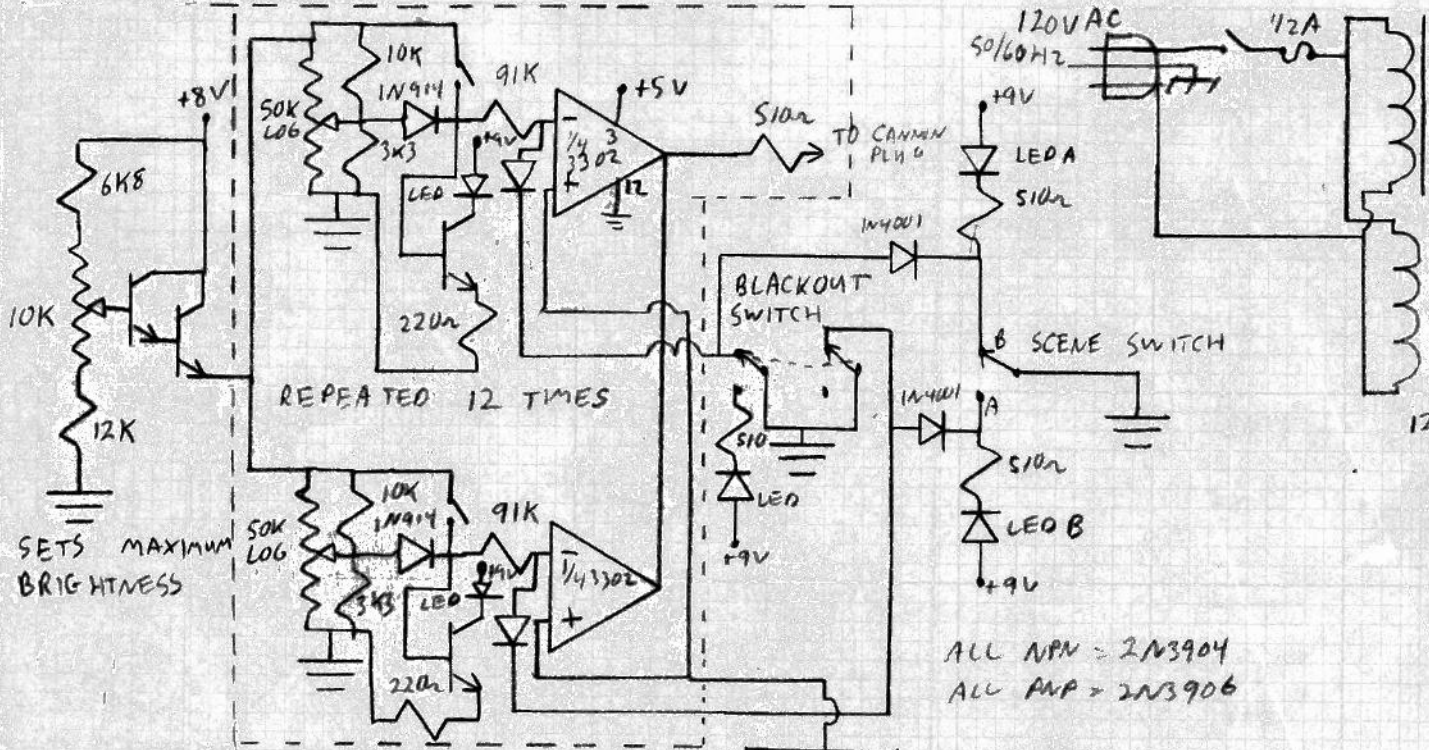 +8V
6K8
10K
12K
SETS MAXIMUM
BRIGHTNESS
50K
LOG
10K
1N914
3K3
91K
+9V
LED
220Ω
1/4
3302
-
+
3
12
+5V
510Ω
TO CANNON
PLUG
REPEATED 12 TIMES
50K
LOG
10K
1N914
3K3
91K
+9V
LED
220Ω
1/4 3302
-
+
BLACKOUT
SWITCH
510
LED
+9V
120VAC
50/60HZ
1/2A
+9V
LED A
510Ω
1N4001
B
SCENE SWITCH
A
1N4001
510Ω
LED B
+9V
12
ALL NPN = 2N3904
ALL PNP = 2N3906